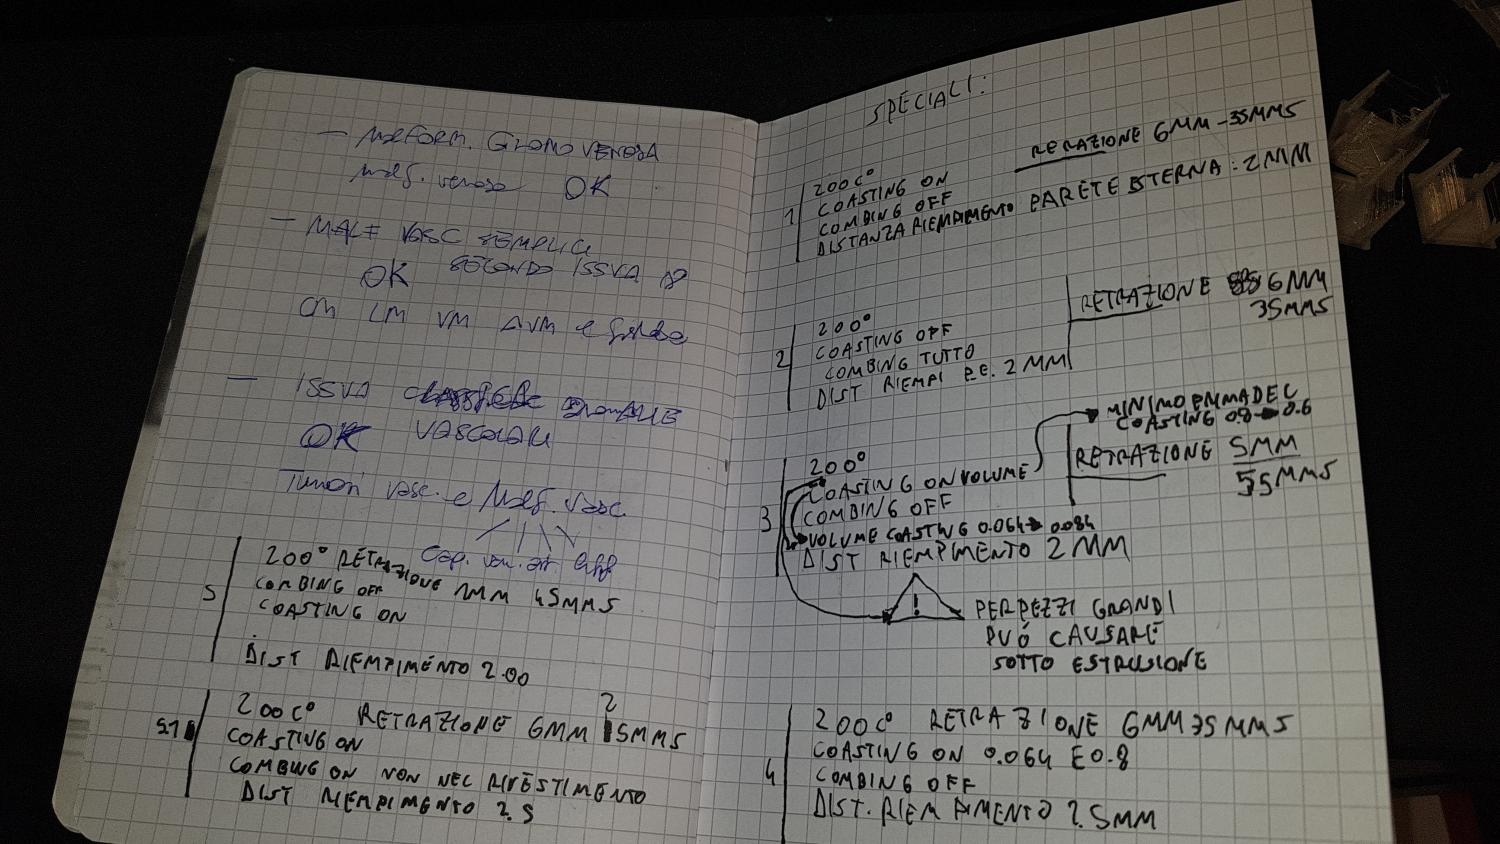 - MALFORM. GLOMOVENOSA
malf. venosa OK
- MALF VASC SEMPLICI
OK SECONDO ISSVA 18
CM LM VM AVM e
- ISSVA ANOMALIE
OK VASCOLARI
Tumori vasc. e Malf. Vasc
Cap. ven. art
5 200° RETRAZIONE 45MMS
COMBING OFF
COASTING ON
DIST RIEMPIMENTO 2.00
5.1 200C° RETRAZIONE 6MM 25MMS
COASTING ON
COMBING ON NON NEL RIVESTIMENTO
DIST RIEMPIMENTO 2.5
SPECIALI:
RETRAZIONE 6MM - 35MMS
1 200C°
COASTING ON
COMBING OFF
DISTANZA RIEMPIMENTO PARETE ESTERNA: 2MM
RETRAZIONE 6MM
35MMS
2 200°
COASTING OFF
COMBING TUTTO
DIST RIEMPI P.E. 2MM
MINIMO PMMADEC
COASTING 0.8 → 0.6
RETRAZIONE 5MM
55MMS
3 200°
COASTING ON VOLUME
COMBING OFF
VOLUME COASTING 0.064 → 0.084
DIST RIEMPIMENTO 2MM
! PER PEZZI GRANDI
PUÓ CAUSARE
SOTTO ESTRUSIONE
4 200C° RETRAZIONE 6MM 35MMS
COASTING ON 0.064 E 0.8
COMBING OFF
DIST. RIEMPIMENTO 2.5MM